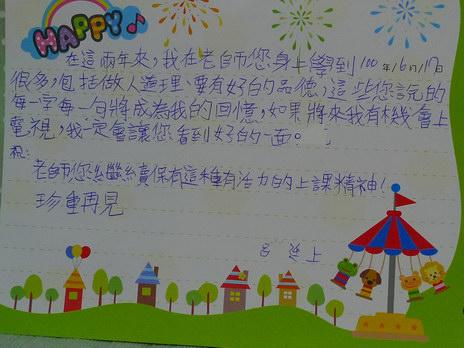 HAPPY
在這兩年來,我在老師您身上學到
100年6月17日
很多,包括做人道理、要有好的品德,這些您說的
每一字每一句將成為我的回憶,如果將來我有機會上
電視,我一定會讓您看到好的一面。
祝:
老師您繼續保有這種有活力的上課精神!
珍重再見
呂 上